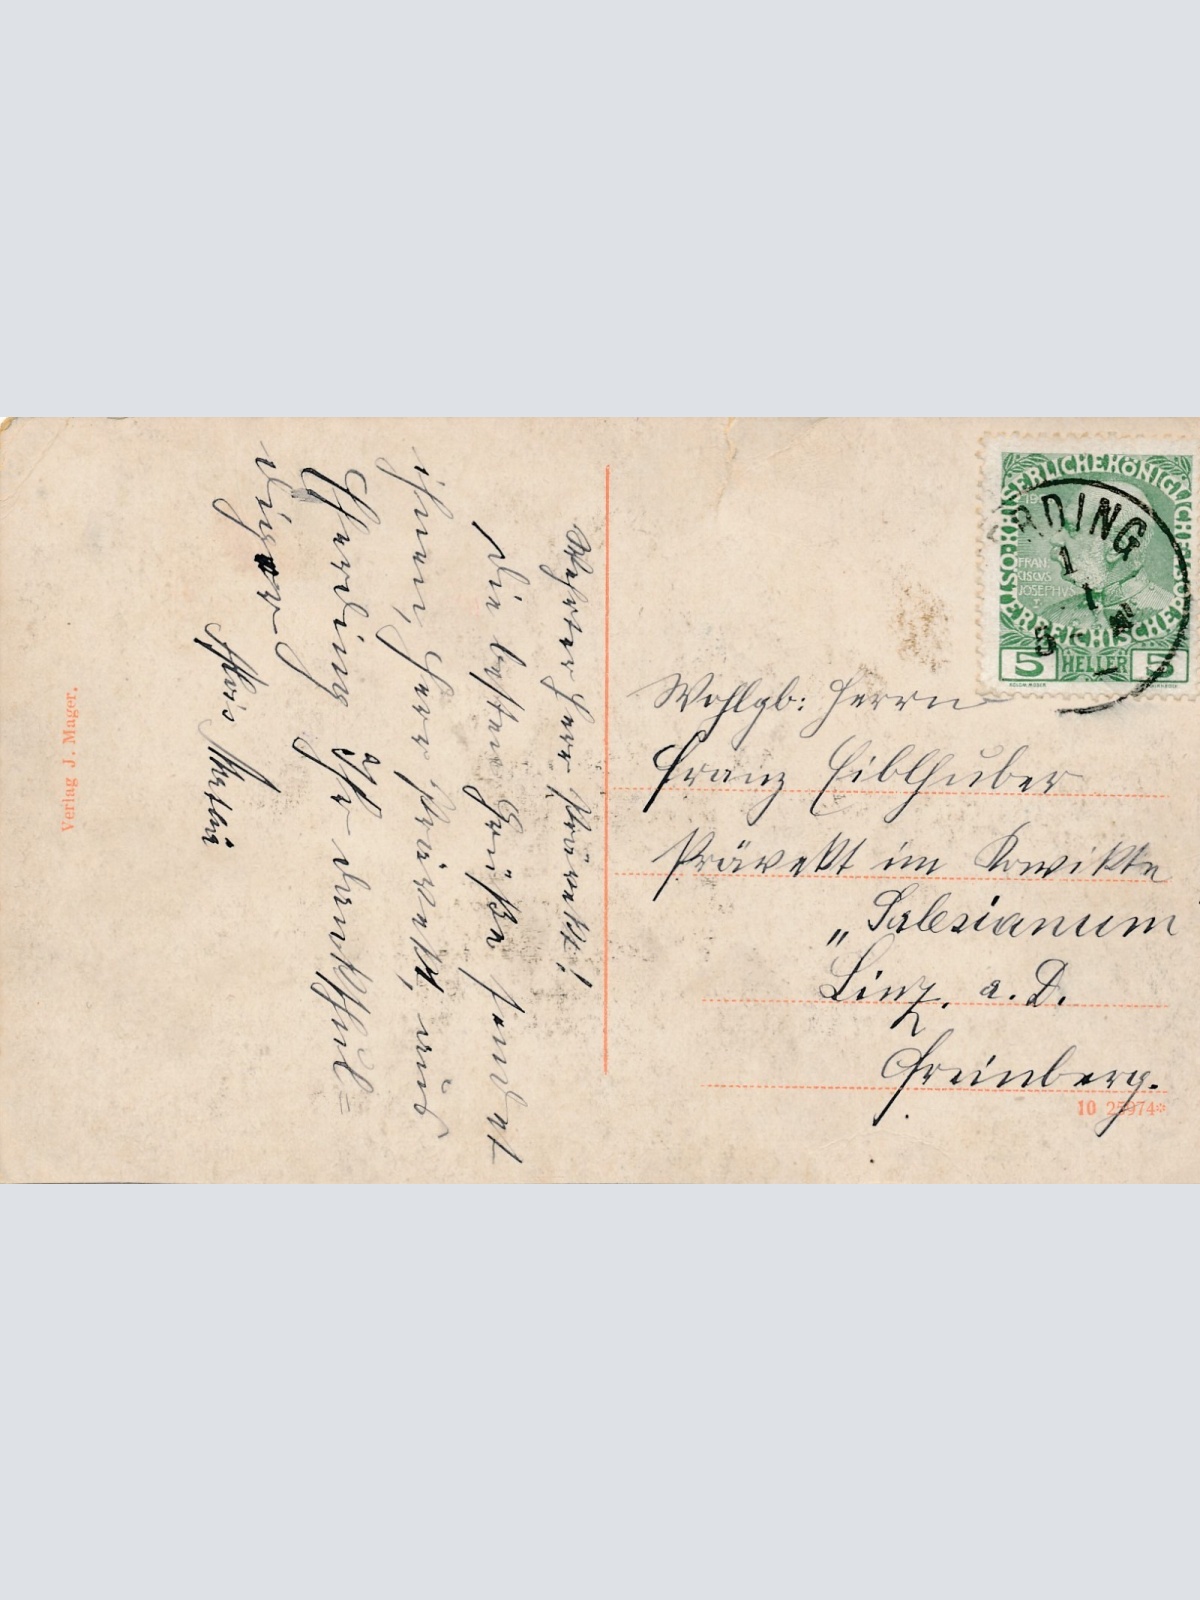 Werter Herr Prävekt!
Die besten Grüße sendet
ihnen, Herr Prävekt, aus
Scherding Ihr dankschul=
diger
Alois
Verlag J. Mager.
KAISERLICHE KÖNIGLICHE
ÖSTERREICHISCHE
FRAN
CISCVS
JOSEPHVS
I
5 HELLER 5
RDING
1
1
Wohlgb: Herrn
Franz Eiblhuber
Prävekt im Konvikte
„Salesianum
Linz. a. D.
Freinberg.
10 25974*